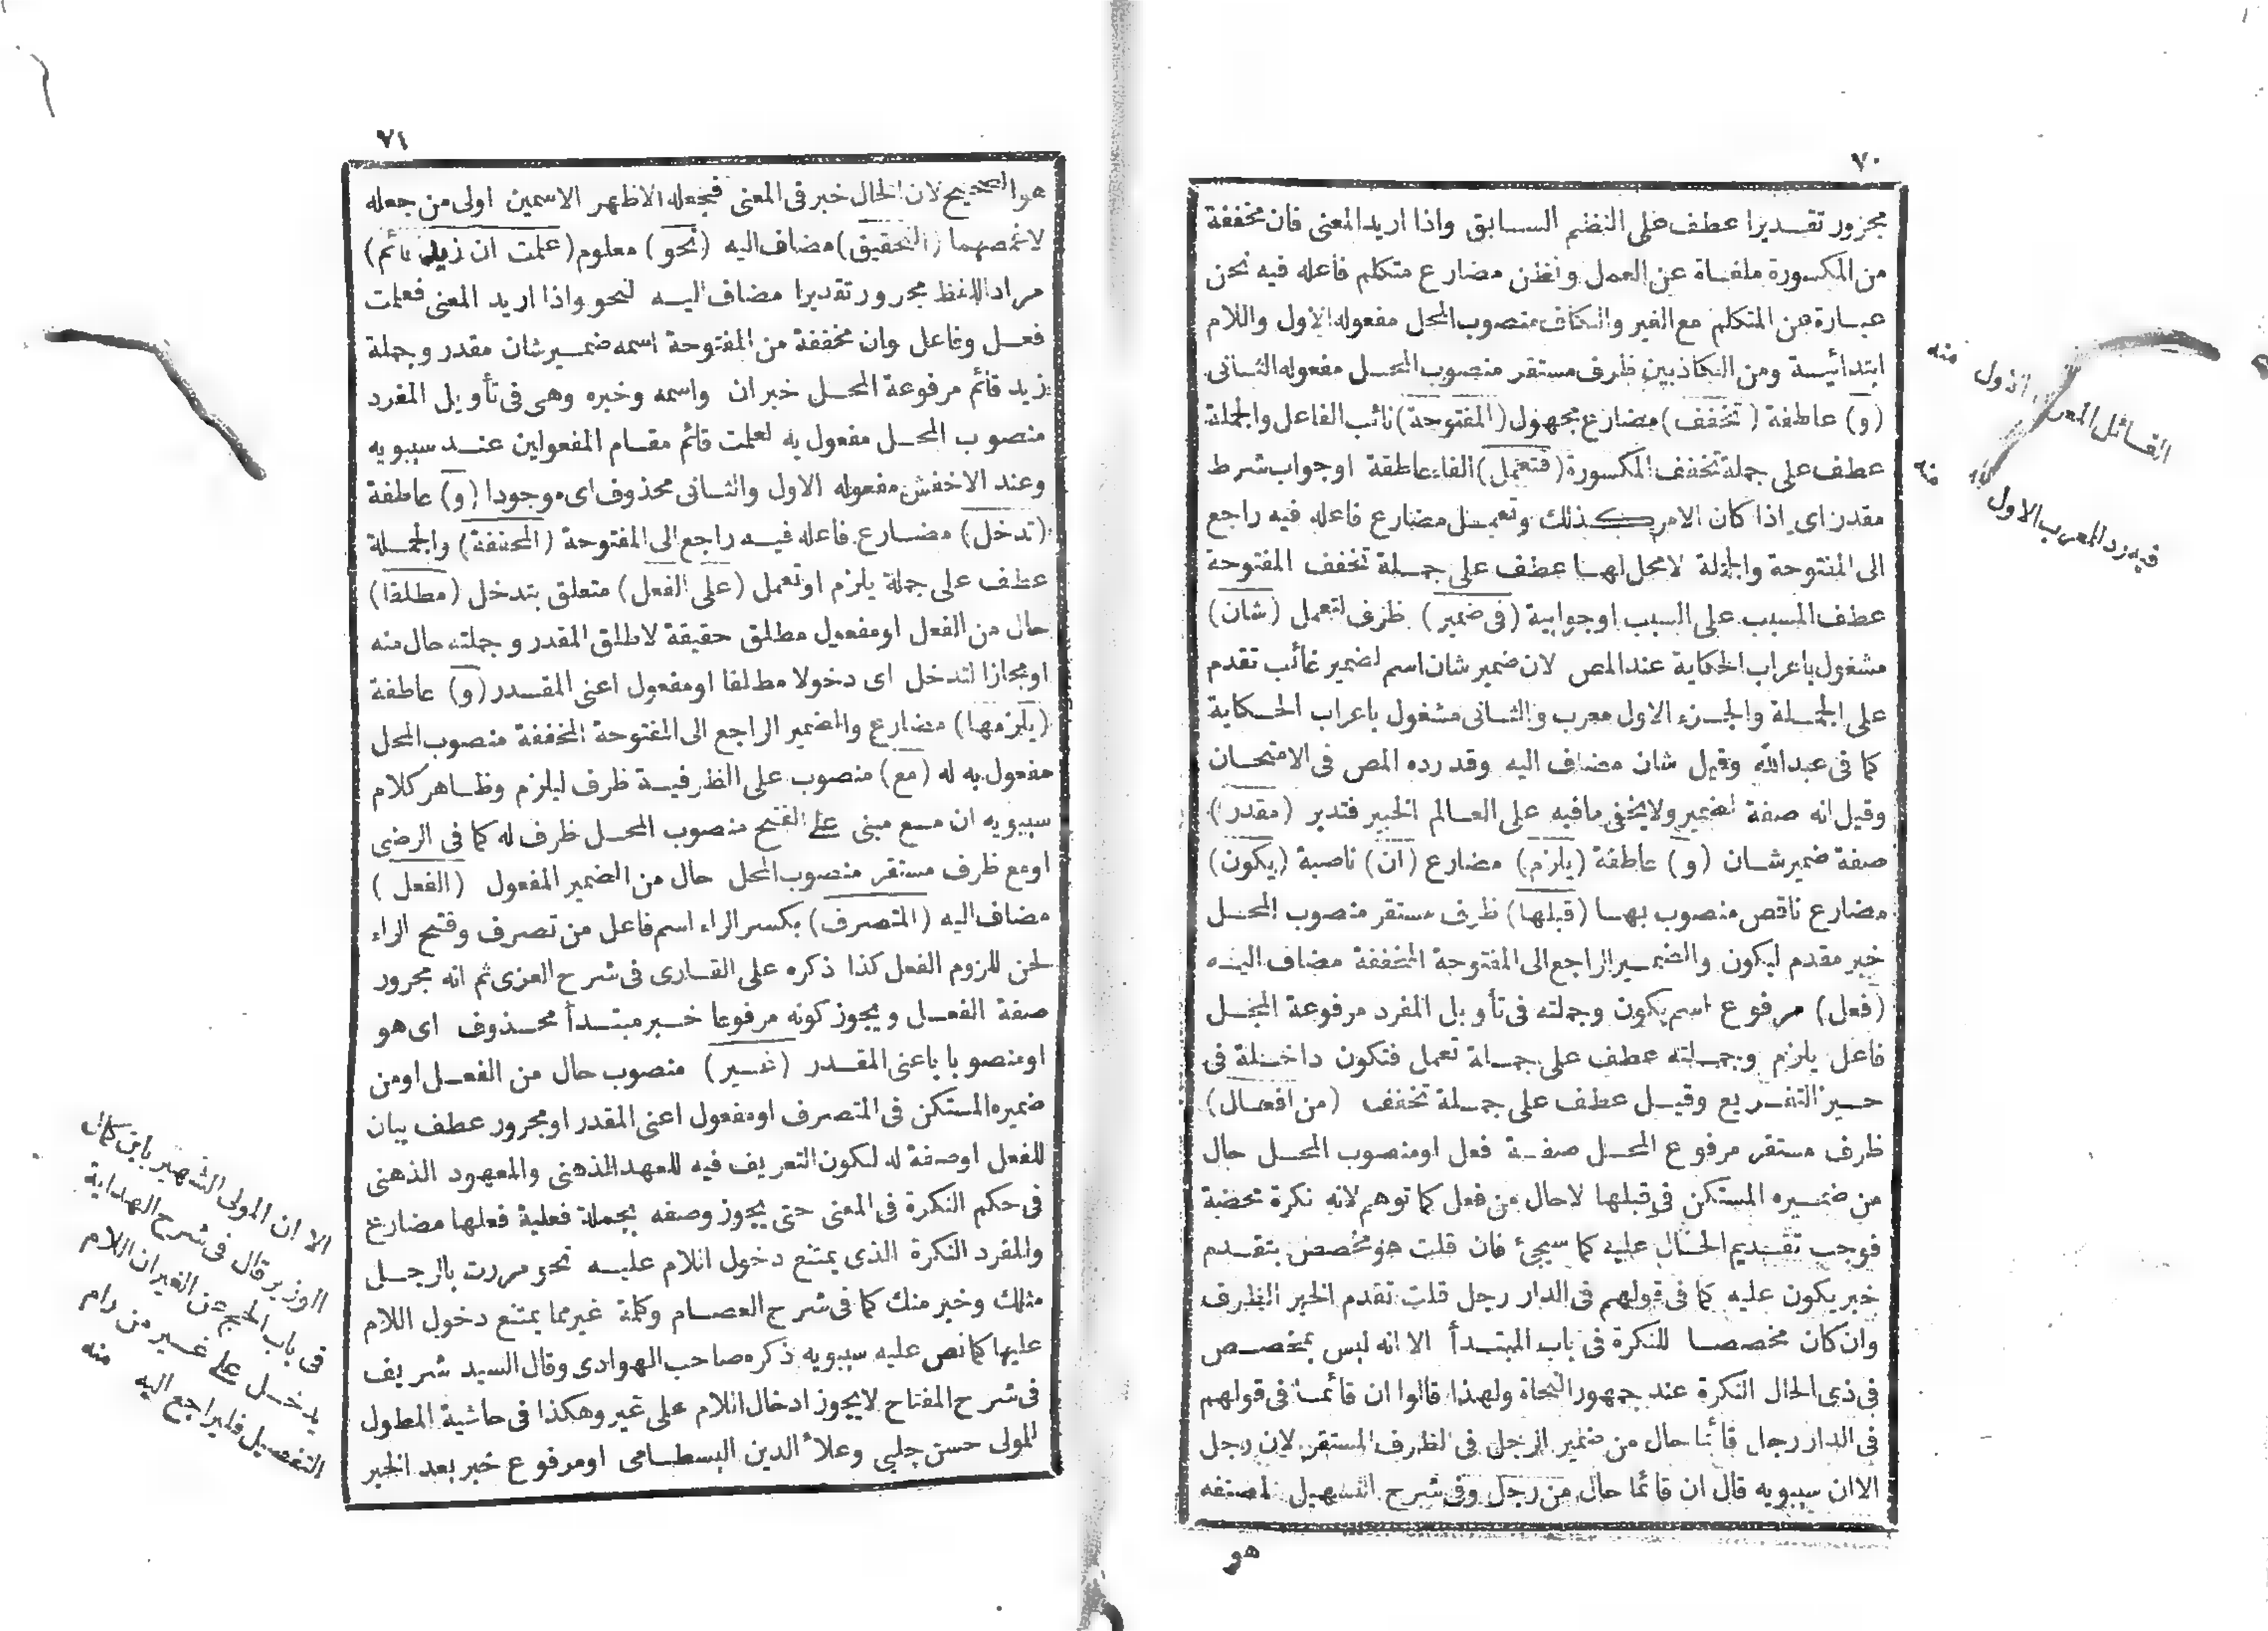 ٧٠
مجرور تقديرا عطف على النظم السابق واذا اريد المعنى فان مخففة
من المكسورة ملغاة عن العمل ونظن مضارع متكلم فاعله فيه نحن
عبارة عن المتكلم مع الغير والكاف منصوب المحل مفعوله الاول واللام
ابتدائية ومن الكاذبين ظرف مستقر منصوب المحل مفعوله الثانى
(و) عاطفة (تخفف) مضارع مجهول (المفتوحة) نائب الفاعل والجملة
عطف على جملة تخفف المكسورة (فتعمل) الفاء عاطفة اوجواب شرط
مقدر اى اذا كان الامر كذلك وتعمل مضارع فاعله فيه راجع
الى المفتوحة والجملة لامحل لها عطف على جملة تخفف المفتوحة
عطف المسبب على السبب اوجوابية (فى ضمير) ظرف لتعمل (شان)
مشغول باعراب الحكاية عند المص لان ضمير شان اسم لضمير غائب تقدم
على الجملة والجزء الاول معرب والثانى مشغول باعراب الحكاية
كما فى عبدالله وقيل شان مضاف اليه وقد رده المص فى الامتحان
وقيل انه صفة لضمير ولايخفى مافيه على العالم الخبير فتدبر (مقدر)
صفة ضمير شان (و) عاطفة (يلزم) مضارع (ان) ناصبة (يكون)
مضارع ناقص منصوب بها (قبلها) ظرف مستقر منصوب المحل
خبر مقدم ليكون والضمير الراجع الى المفتوحة المخففة مضاف اليه
(فعل) مرفوع اسم يكون وجملته فى تأويل المفرد مرفوعة المحل
فاعل يلزم وجملته عطف على جملة تعمل فتكون داخلة فى
حيز التفريع وقيل عطف على جملة تخفف (من افعال)
ظرف مستقر مرفوع المحل صفة فعل اومنصوب المحل حال
من ضميره المستكن فى قبلها لاحال من فعل كما توهم لانه نكرة محضة
فوجب تقديم الحال عليه كما سيجئ فان قلت هو مخصص بتقديم
خبر يكون عليه كما فى قولهم فى الدار رجل قلت تقدم الخبر الظرف
وان كان مخصصا للنكرة فى باب المبتدأ الا انه ليس بمخصص
فى ذى الحال النكرة عند جمهور النحاة ولهذا قالوا ان قائما فى قولهم
فى الدار رجل قائما حال من ضمير الرجل فى الظرف المستقر لامن رجل
الاان سيبويه قال ان قائما حال من رجل وفى شرح التسهيل لمصنفه
هو
القائل المعرب الاول منه
فيه رد المعرب الاول منه
٧١
هو الصحيح لان الحال خبر فى المعنى فجعله لاظهر الاسمين اولى من جعله
لاغمضهما (التحقيق) مضاف اليه (نحو) معلوم (علمت ان زيد قائم)
مراد اللفظ مجرور تقديرا مضاف اليه لنحو واذا اريد المعنى فعلمت
فعل وفاعل وان مخففة من المفتوحة اسمه ضمير شان مقدر وجملة
زيد قائم مرفوعة المحل خبر ان واسمه وخبره وهى فى تأويل المفرد
منصوب المحل مفعول به لعلمت قائم مقام المفعولين عند سيبويه
وعند الاخفش مفعوله الاول والثانى محذوف اى موجودا (و) عاطفة
(تدخل) مضارع فاعله فيه راجع الى المفتوحة (المخففة) والجملة
عطف على جملة يلزم اوتعمل (على الفعل) متعلق بتدخل (مطلقا)
حال من الفعل اومفعول مطلق حقيقة لاطلق المقدر وجملته حال منه
اومجازا لتدخل اى دخولا مطلقا اومفعول اعنى المقدر (و) عاطفة
(يلزمها) مضارع والضمير الراجع الى المفتوحة المخففة منصوب المحل
مفعول به له (مع) منصوب على الظرفية ظرف ليلزم وظاهر كلام
سيبويه ان مع مبنى على الفتح منصوب المحل ظرف له كما فى الرضى
اومع ظرف مستقر منصوب المحل حال من الضمير المفعول (الفعل)
مضاف اليه (المتصرف) بكسر الراء اسم فاعل من تصرف وفتح الراء
لحن للزوم الفعل كذا ذكره على القارى فى شرح العزى ثم انه مجرور
صفة الفعل ويجوز كونه مرفوعا خبر مبتدأ محذوف اى هو
اومنصوبا باعنى المقدر (غير) منصوب حال من الفعل اومن
ضميره المستكن فى المتصرف اومفعول اعنى المقدر اومجرور عطف بيان
للفعل اوصفة له لكون التعريف فيه للعهد الذهنى والمعهود الذهنى
فى حكم النكرة فى المعنى حتى يجوز وصفه بجملة فعلية فعلها مضارع
والمفرد النكرة الذى يمتنع دخول اللام عليه نحو مررت بالرجل
مثلك وخير منك كما فى شرح العصام وكلمة غير مما يمتنع دخول اللام
عليها كما نص عليه سيبويه ذكره صاحب الهوادى وقال السيد شريف
فى شرح المفتاح لايجوز ادخال اللام على غير وهكذا فى حاشية المطول
للمولى حسن چلبى وعلاء الدين البسطامى اومرفوع خبر بعد الخبر
الا ان المولى الشهير بابن كمال
الوزير قال فى شرح الهداية
فى باب الحج عن الغير ان اللام
يدخل على غير من رام
التفصيل فليراجع اليه منه